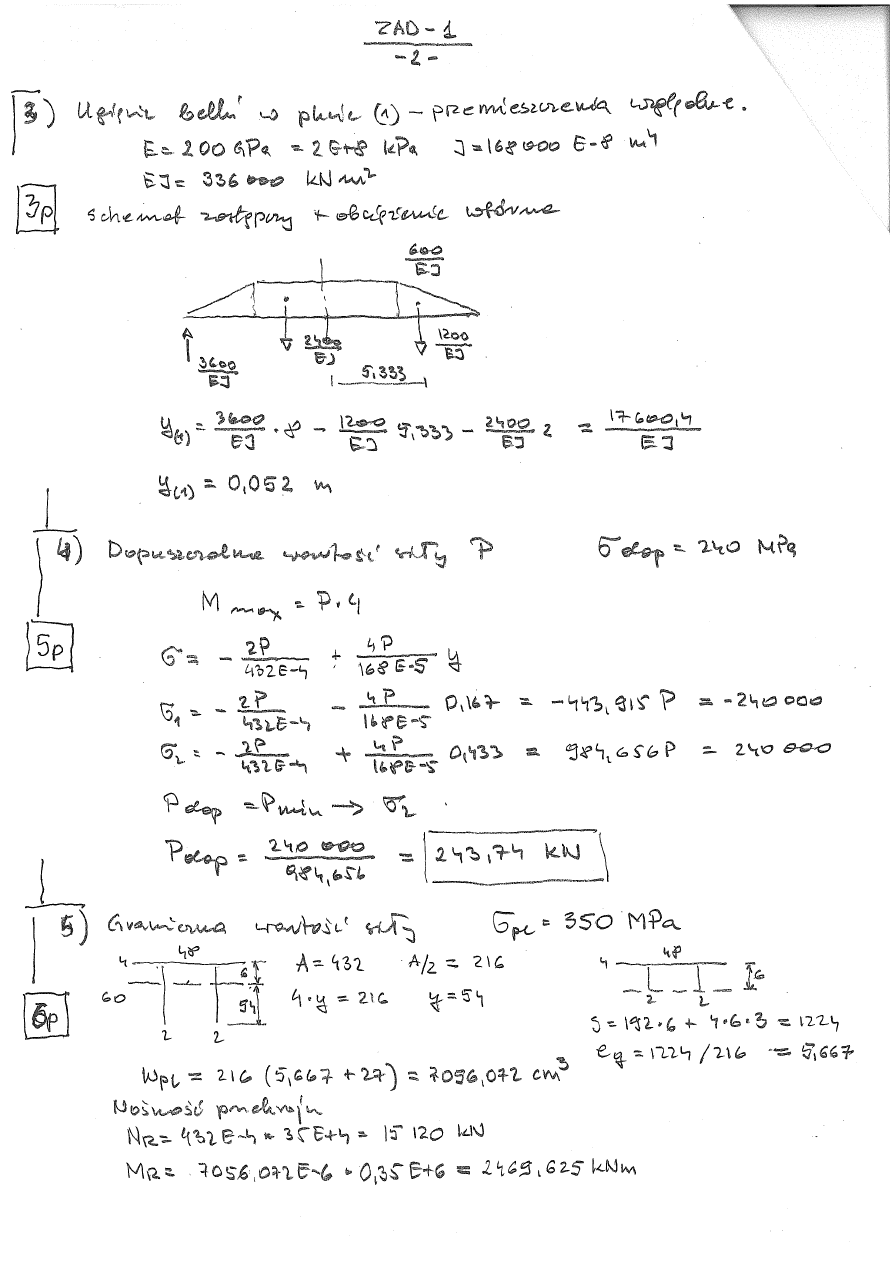 ZAD-1
-2-
3) Ugięcie belki w pkcie (1) – przemieszczenia względne.
E = 200 GPa = 2E+8 kPa J = 168000 E-8 m4
EJ = 336000 kNm²
3p schemat zastępczy + obciążenie wtórne
600/EJ
3600/EJ 2400/EJ 1200/EJ
5,333
y(1) = 3600/EJ · 8 - 1200/EJ 5,333 - 2400/EJ 2 = 17600,4/EJ
y(1) = 0,052 m
4) Dopuszczalna wartość siły P σdop = 240 MPa
M max = P.4
5p
σ = - 2P/432E-4 + 4P/168E-5 y
σ1 = - 2P/432E-4 - 4P/168E-5 0,167 = -443,915 P = -240000
σ2 = - 2P/432E-4 + 4P/168E-5 0,433 = 984,656P = 240000
Pdop = Pmin → σ2
Pdop = 240000/984,656 = 243,74 kN
5) Graniczna wartość siły σpl = 350 MPa
4 48 6 A = 432 A/2 = 216 4 48 6
60 54 4·y = 216 y = 54
2 2 2 2
6p
S = 192·6 + 4·6·3 = 1224
eg = 1224/216 = 5,667
Wpl = 216 (5,667 + 27) = 7056,072 cm³
Nośność przekroju
NR = 432E-4 * 35E+4 = 15 120 kN
MR = 7056,072E-6 · 0,35E+6 = 2469,625 kNm